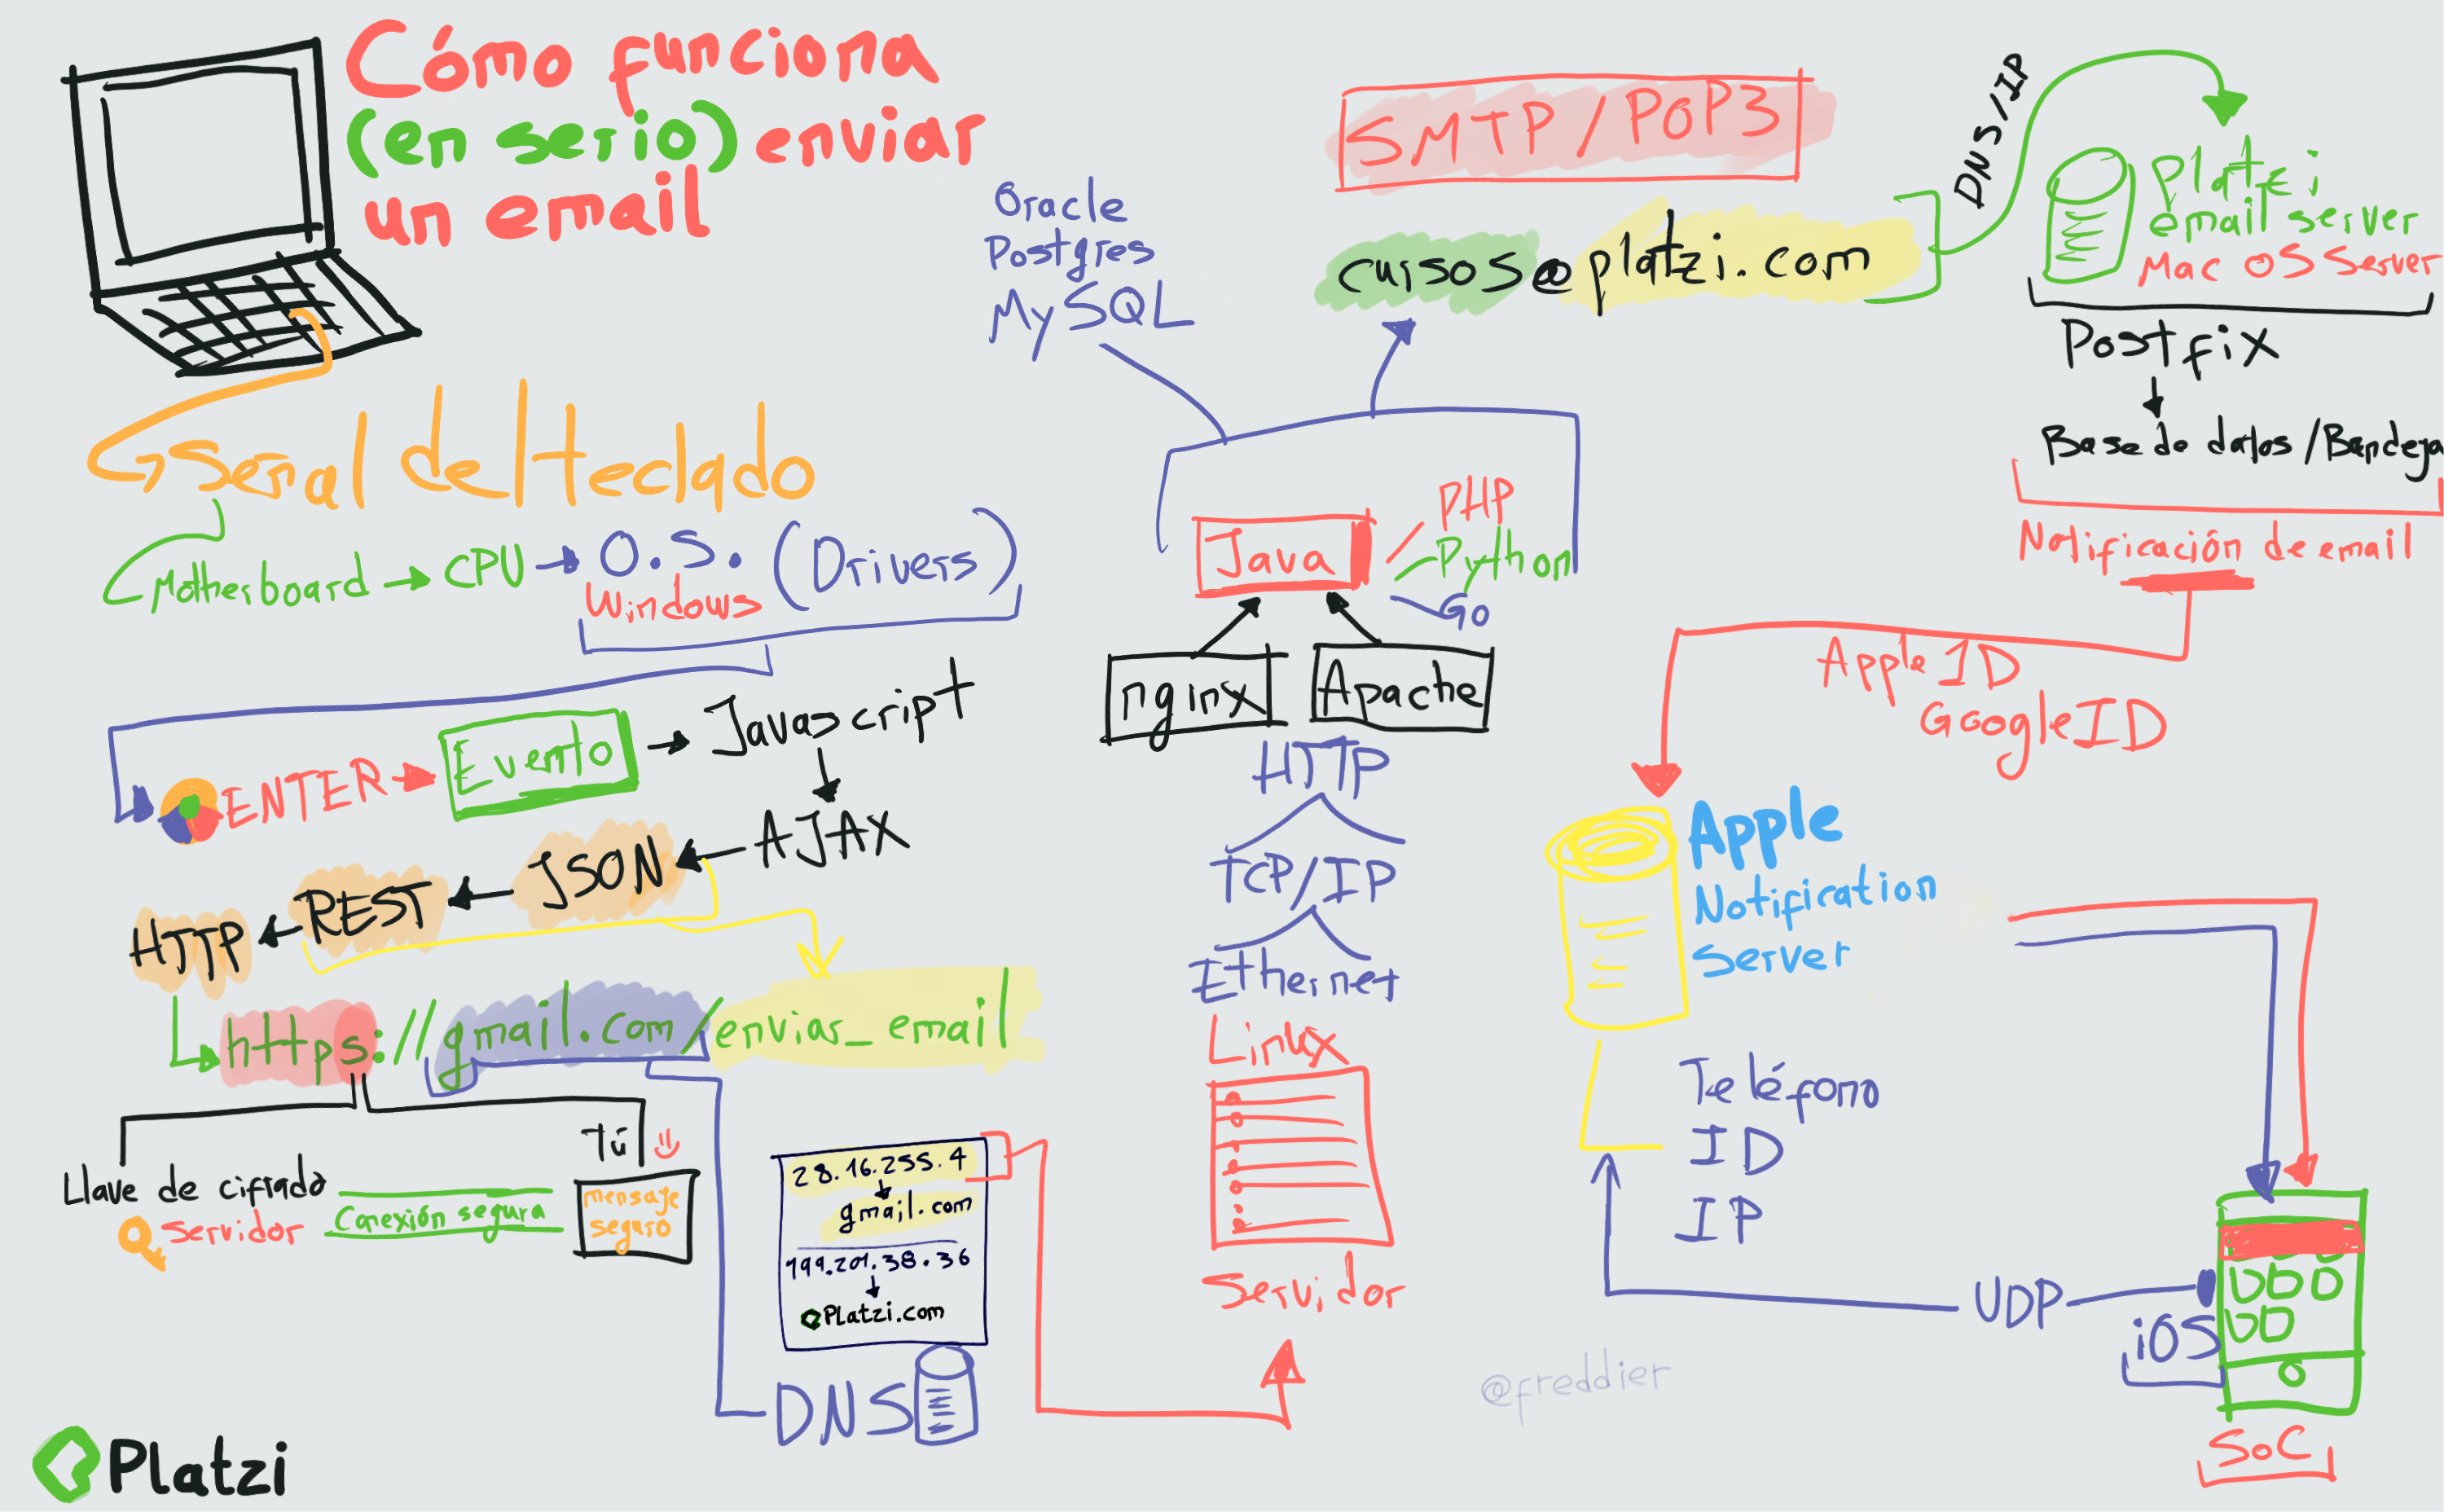 Cómo funciona
(en serio) enviar
un email
Señal del teclado
Motherboard → CPU → O.S. (Drivers)
Windows
ENTER → Evento → Javascript
AJAX
JSON
REST
HTTP
https://gmail.com/enviar_email
Llave de cifrado
Servidor
Conexión segura
Tú
mensaje
seguro
28.16.255.4
gmail.com
199.201.38.36
Platzi.com
DNS
Platzi
Oracle
Postgres
MySQL
SMTP/POP3
cursos@platzi.com
Java
PHP
Python
Go
nginx
Apache
HTTP
TCP/IP
Ethernet
Linux
Servidor
DNS/IP
Platzi
email server
Mac OS Server
Postfix
Base de datos/Bandeja
Notificación de email
Apple ID
Google ID
Apple
Notification
Server
Teléfono
ID
IP
UDP
iOS
SoC
@freddier